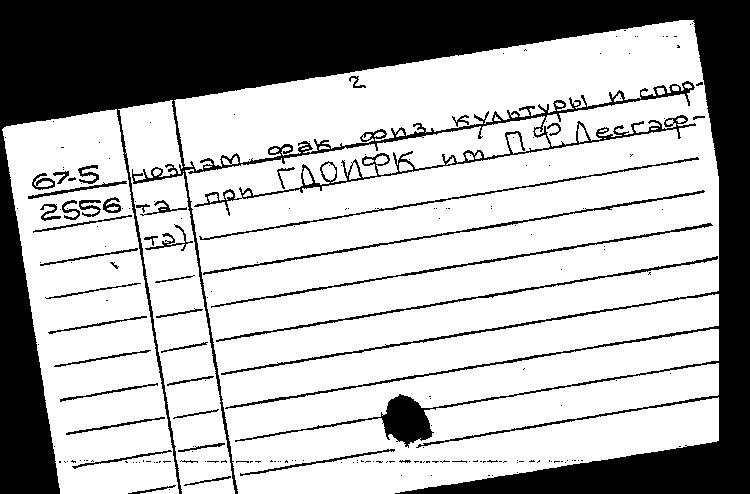 2
67-5 нознам. фак. физ. культуры и спор-
2556 та при ГДОИФК им. П.Ф. Лесгаф-
та)